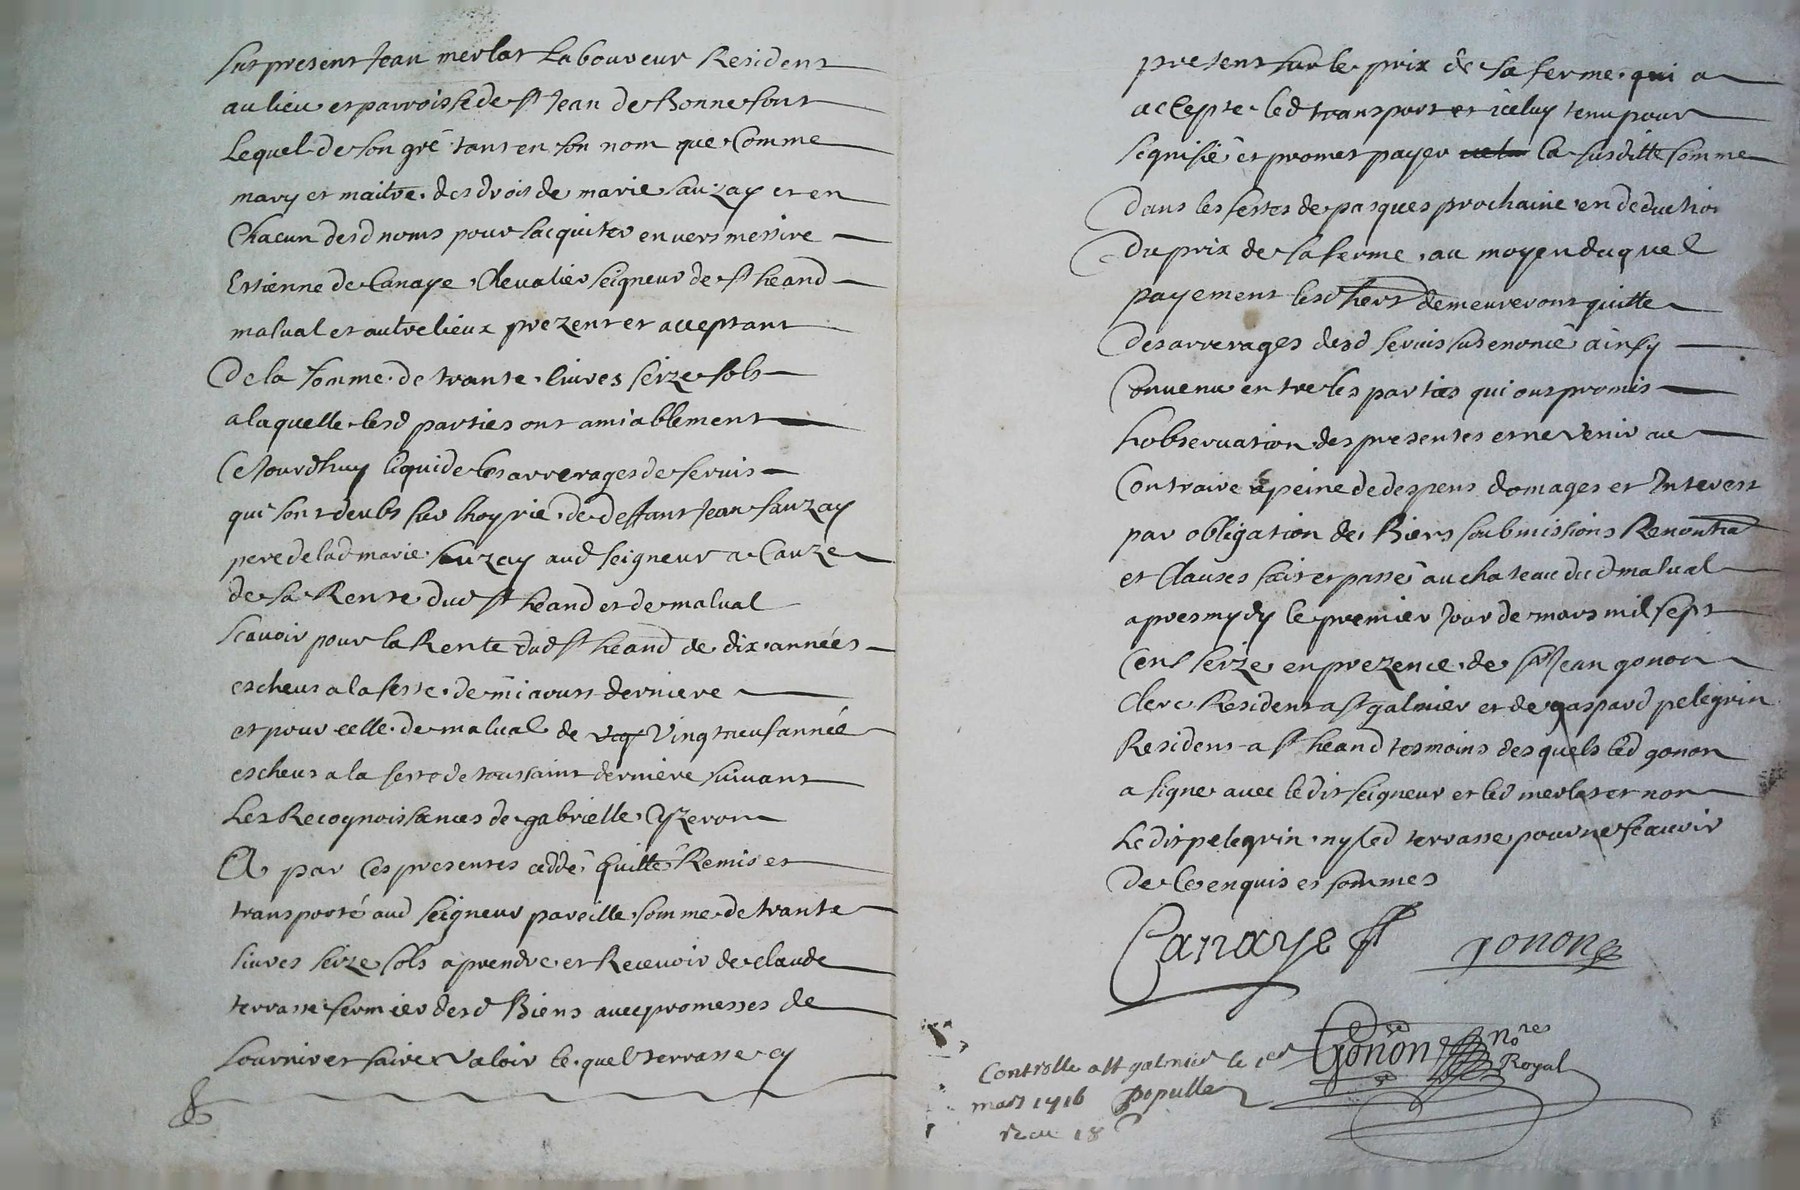 fut present Jean merlat Laboureur Resident
au lieu et parroisse de St Jean de Bonnefont
Lequel de son gré tant en son nom que Comme
mary et maitre des drois de marie sauzay et en
Chacun desd noms pour sacquiter envers messire
Estienne de Canaye Chevalier seigneur de St heand
malual et autre lieux prezent et acceptant
De la somme de trante liures seize sols
a laquelle lesd parties ont amiablement
Cejourdhuy liquide les arrerages de seruis
qui sont deubs sur lhoyrie de deffunt Jean sauzay
pere de lad marie sauzay aud seigneur a Cauze
de sa Rente dud St heand et de malual
scavoir pour la Rente dud St heand de dix années
escheus a la feste de miaoust derniere
et pour celle de malual de Vingt neuf année
escheus a la feste de toussaint derniere suiuant
Les Recognoissances de gabrielle Eyzeron
A par ces presentes ceddé quitté Remis et
transporté aud seigneur pareille somme de trante
liures seize sols a prendre et Receuoir de claude
terrasse fermier desd Biens auec promesses de
fournir et faire Valoir le quel terrasse cy
present sur le prix de sa ferme qui a
accepte led transport et iceluy tenu pour
signifié et promet payer la susditte somme
Dans les festes de pasques prochaine en deduction
Du prix de sa ferme au moyen duquel
payement lesd demeureront quitte
des arrerages desd seruis susenoncé ainsy
Conuenu entre les parties qui ont promis
lobseruation des presentes et ne Venir au
Contraire a peine de despens domages et Interest
par obligation de Biens soubmissions Renontia
et Clauses fait et passé au chateau dud malual
apres mydy le premier Jour de mars mil sept
Cent seize en prezence de sr Jean gonon
Clerc Resident a St galmier et de gaspard pelegrin
Resident a St heand tesmoins desquels led gonon
a signe auec ledit seigneur et led merlat et non
Ledit pelegrin ny led terrasse pour ne scauoir
de Ce enquis et sommes
Canaye
gonon
Gonon Nores
Royal
Controlle a St galmier le 1er
mars 1716 Populle
Recu 18